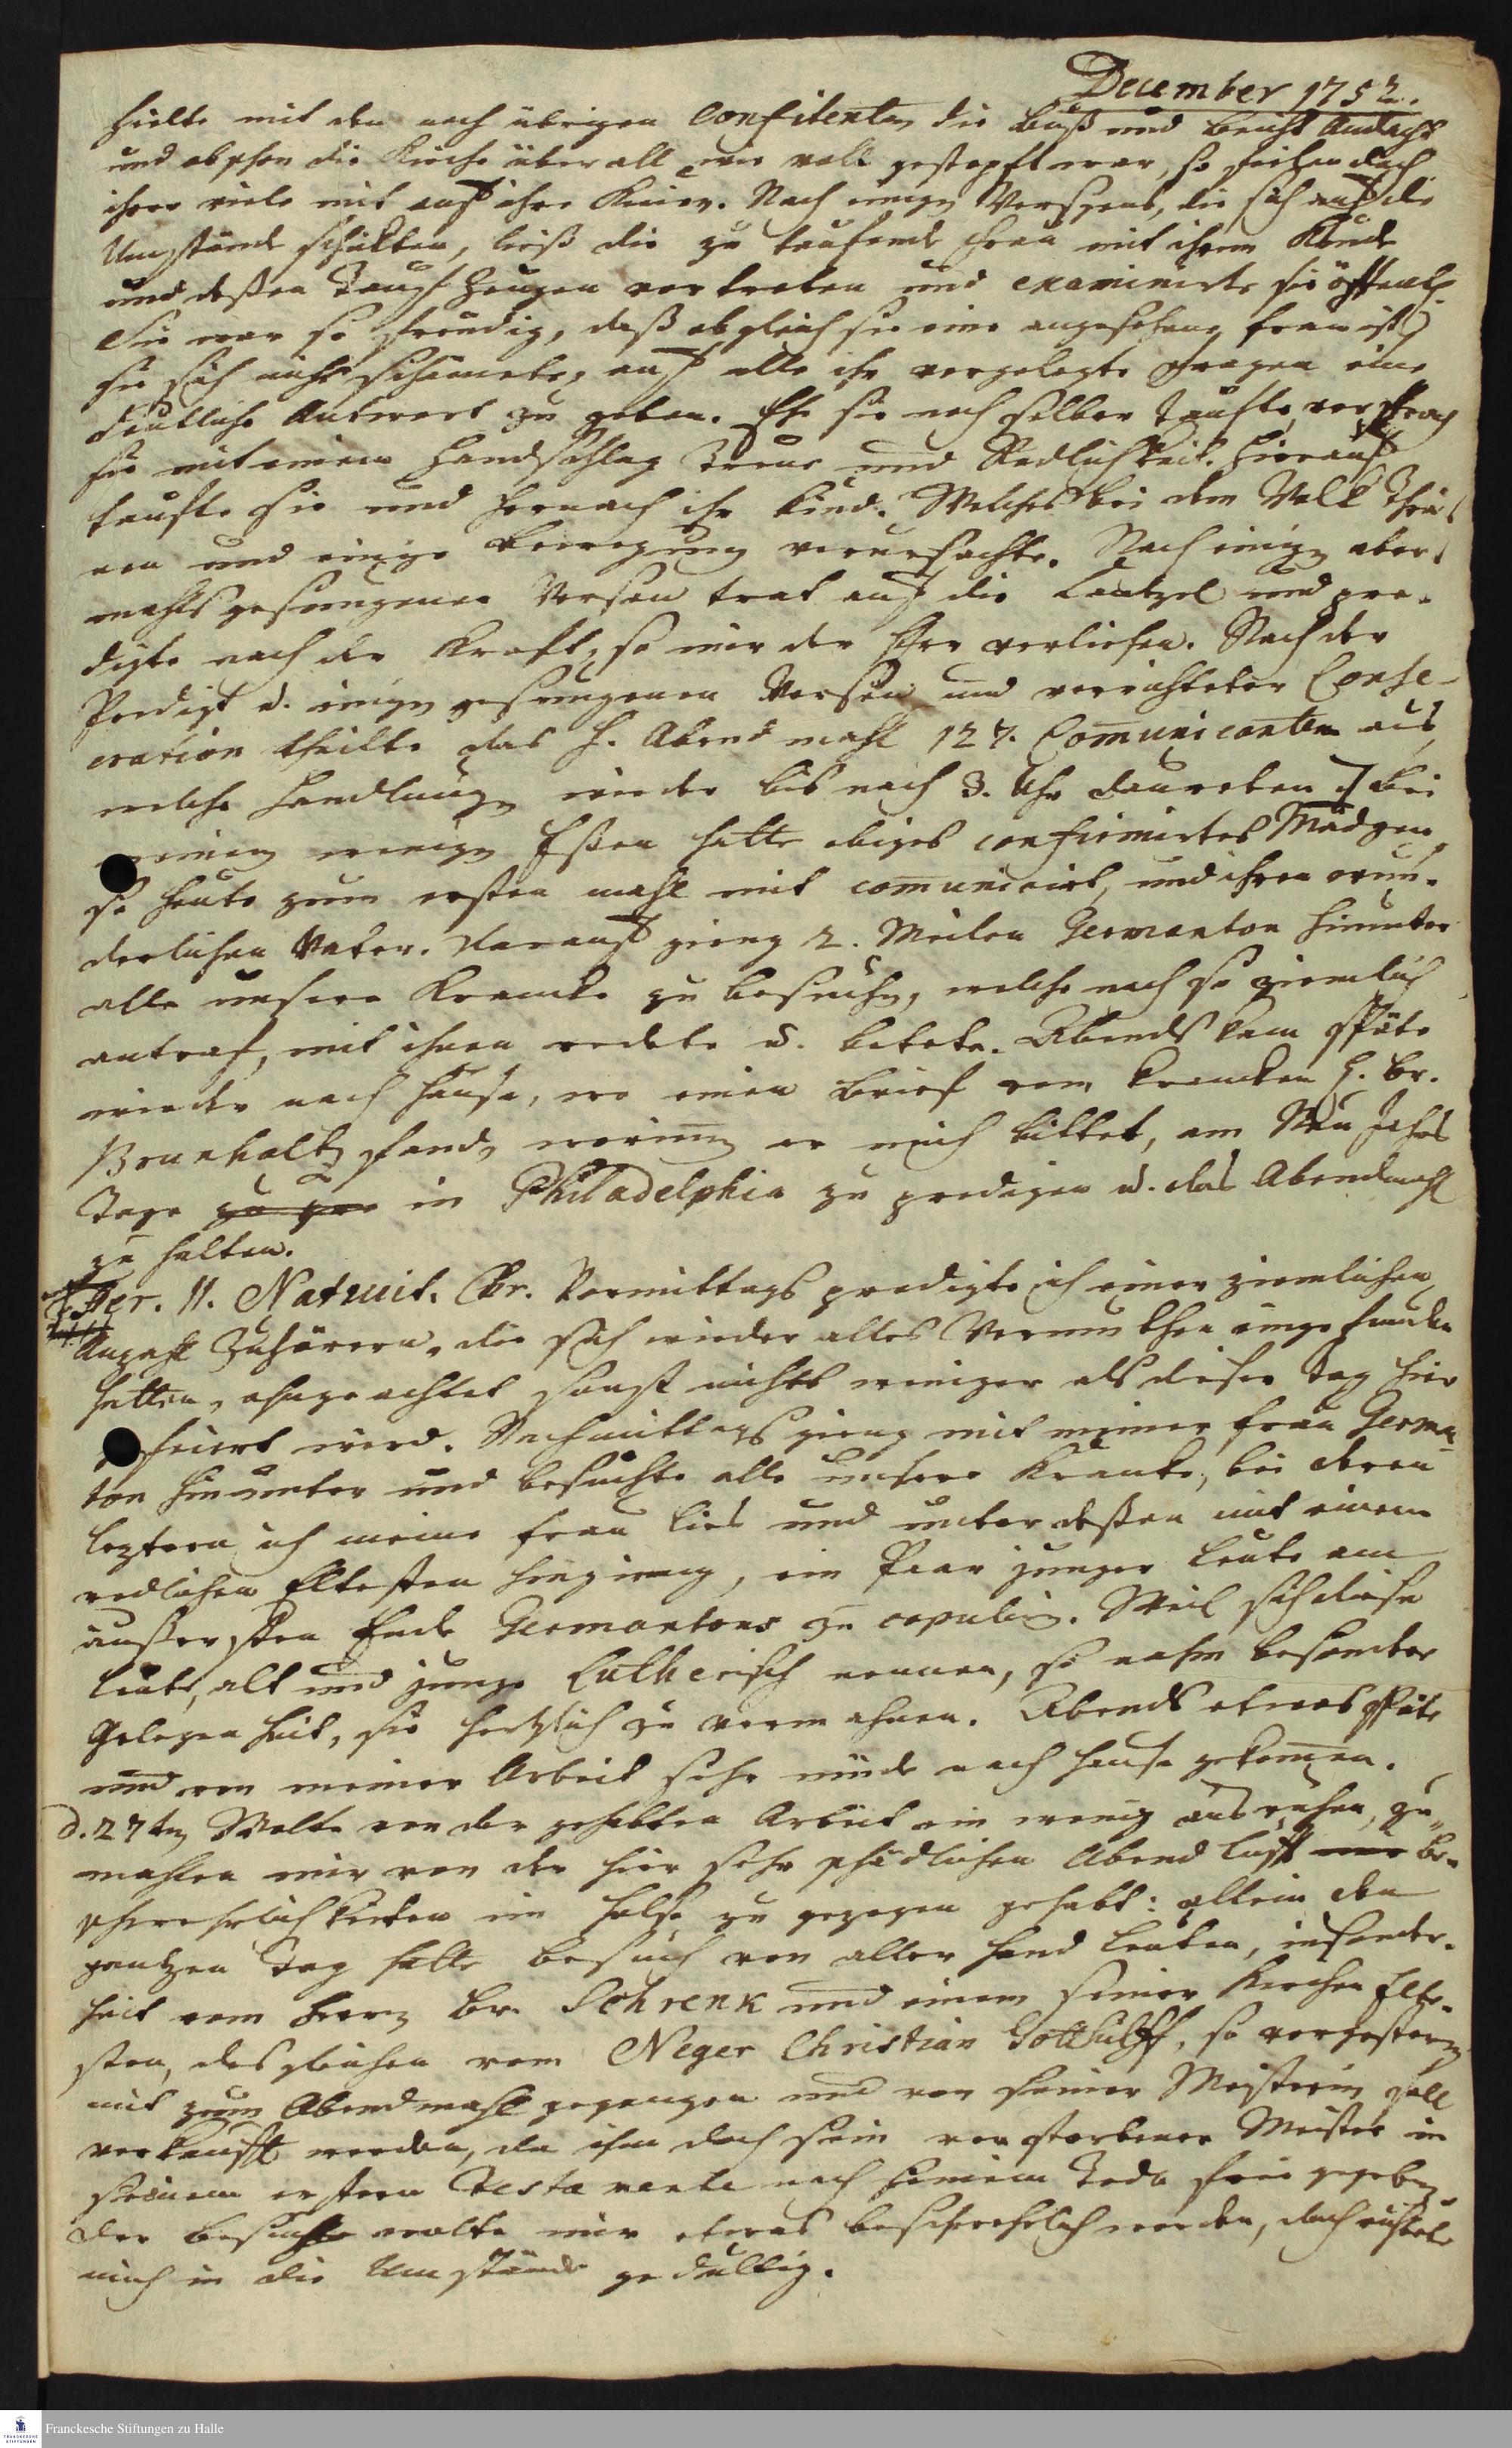 December 1752.
hielte mit den noch übrigen Confitenten die Buß und Beicht Andacht
und obschon die Kirche überall wie voll gestopft war, so fielen doch
ihrer viele mit auf ihre Kniee. Nach einigen Versgens, die sich auf die
Umstände schickten, ließ die zu taufende Frau mit ihrem Kinde
und deßen Tauf Zeugen vortreten und examinirte sie öffentl.
Sie war so freudig, daß obgleich sie eine angesehene Frau ist)
sie sich nicht schämete, auf alle ihr vorgelegte Fragen eine
deutliche Antwort zu geben. Ehe sie noch selber taufte, versprach
sie mit einem Handschlag Treue und Redlichkeit. Hierauf
taufte sie und hernach ihr Kind. Welches bei dem Volk Thrä-
nen und einige Bewegung verursachte. Nach einigen aber-
mahls gesungenen Versen trat auf die Cantzel und pre-
digte nach der Kraft, so mir der Herr verliehen. Nach der
Predigt u. einigen gesungenen Versen und verrichteter Conse-
cration theilte das H. Abendmahl 127. Communicanten aus,
welche Handlungen wieder bis nach 3. Uhr daureten bei
meinem wenigen Eßen hatte obiges confirmirtes Mädgen,
so heute zum ersten mahl mit communicirt, und ihren wun-
derlichen Vater. Darauf gieng 2. Meilen Germanton hinunter
alle unsere Krancke zu besuchen, welche noch so ziemlich
antraf, mit ihnen redete u. betete. Abends kam späte
wieder nach Hause, wo einen Brief vom krancken H. Br.
Brunholtz fand, worinnen er mich bittet, am Neu Jahrs
Tage zu pre in Philadelphia zu predigen u. das Abendmahl
zu halten.
Fer. II. Nativit. Chr. Vormittags predigte ich einer ziemlichen
Anzahl Zuhörern, die sich wieder alles Vermuthen eingefunden
hatten, ohngeachtet sonst nichts weniger als dieser Tag hier
gefeiert wird. Nachmittags gieng mit meiner Frau Germa-
ton hinunter und besuchte alle unsere Krancke, bei deren
leztern ich meine Frau lies und unterdeßen mit einem
redlichen Eltesten hingieng, ein Paar junger Leute am
äußersten Ende Germantons zu copuliren. Weil sich diese
Leute, alt und junge Lutherisch nennen, so nahm besonder
Gelegenheit, sie hertzlich zu vermahnen. Abends etwas späte
und von meiner Arbeit sehr müde nach Hause gekommen.
d. 27ten Wolte von der gehabten Arbeit ein wenig ausruhen, zu-
mahlen mir von der hier sehr schädlichen Abend Luft mir Be-
schwerlichkeiten im Halse zu gezogen gehabt: allein den
gantzen Tag hatte Besuch von aller Hand Leuten, insonder-
heit vom Herrn Br. Schrenk und einem seiner Kirchen Elte-
sten, desgleichen vom Neger Christian Gotthülff, so vorgestern
mit zum Abendmahl gegangen und von seiner Meisterin soll
verkaufft werden, da ihm doch sein verstorbener Meister in
seinem erstern Testamente nach seinem Tode frei gegeben
Der Besuch wolte mir etwas beschwerlich werden, doch
mich in die Umstände gedultig.
Franckesche Stiftungen zu Halle
FRANCKESCHE STIFTUNGEN